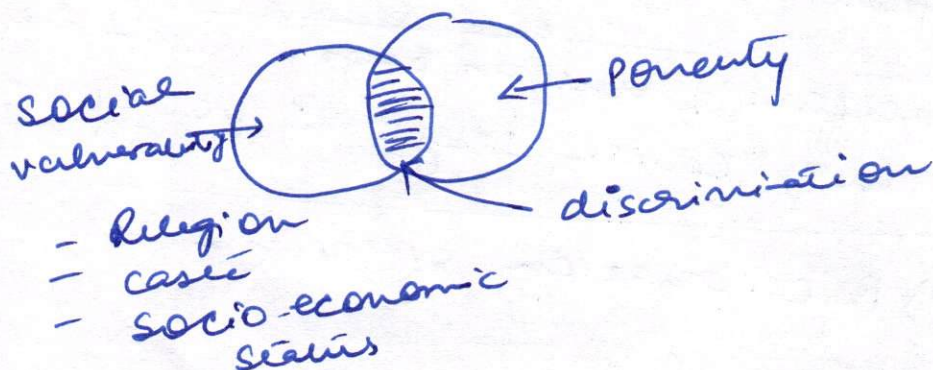 social
vulnerability
poverty
discrimination
- Religion
- caste
- socio-economic
status